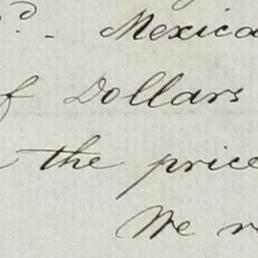 Mexica
of Dollars
the price
We